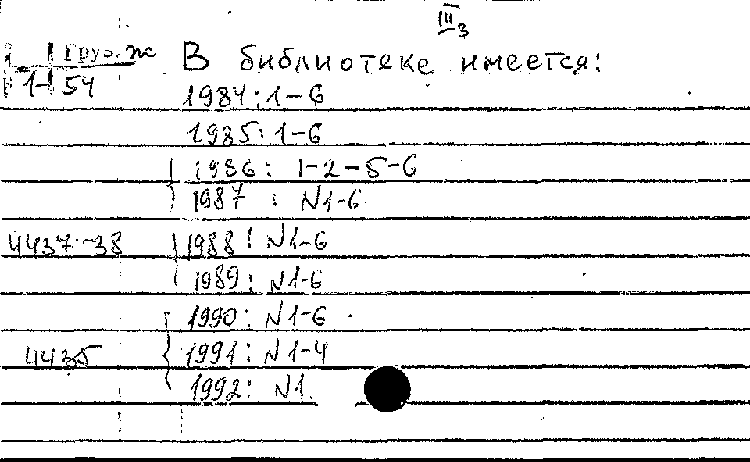 III 3
Груз. ж В библиотеке имеется:
1-54
1984: 1-6
1985: 1-6
1986: 1-2-5-6
1987: N1-6
4437-38 1988: N1-6
1989: N1-6
1990: N1-6
4435 1991: N1-4
1992: N1.